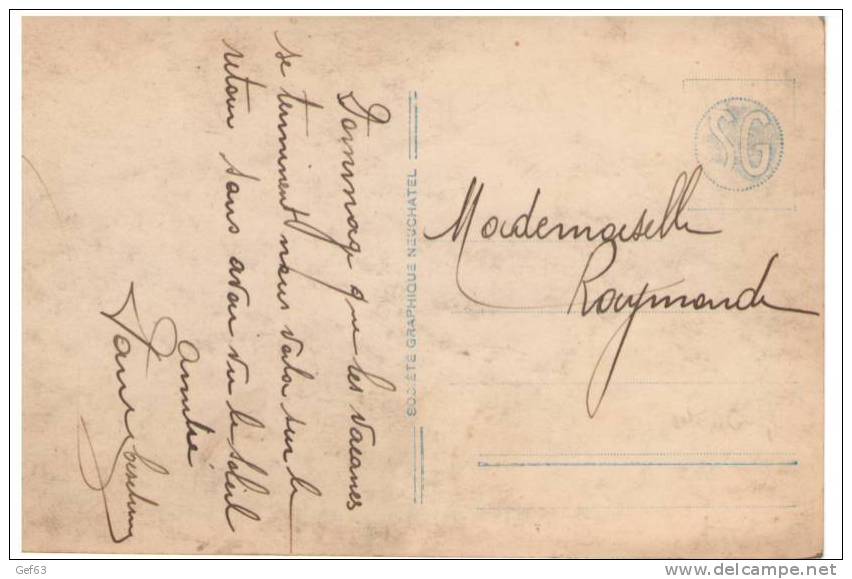 Dommage que les vacances
se terminent nous voila sur le
retour sans avoir vu le soleil
amitié
SOCIÉTÉ GRAPHIQUE NEUCHATEL
SG
Mademoiselle
Raymonde
Gef63
www.delcampe.net